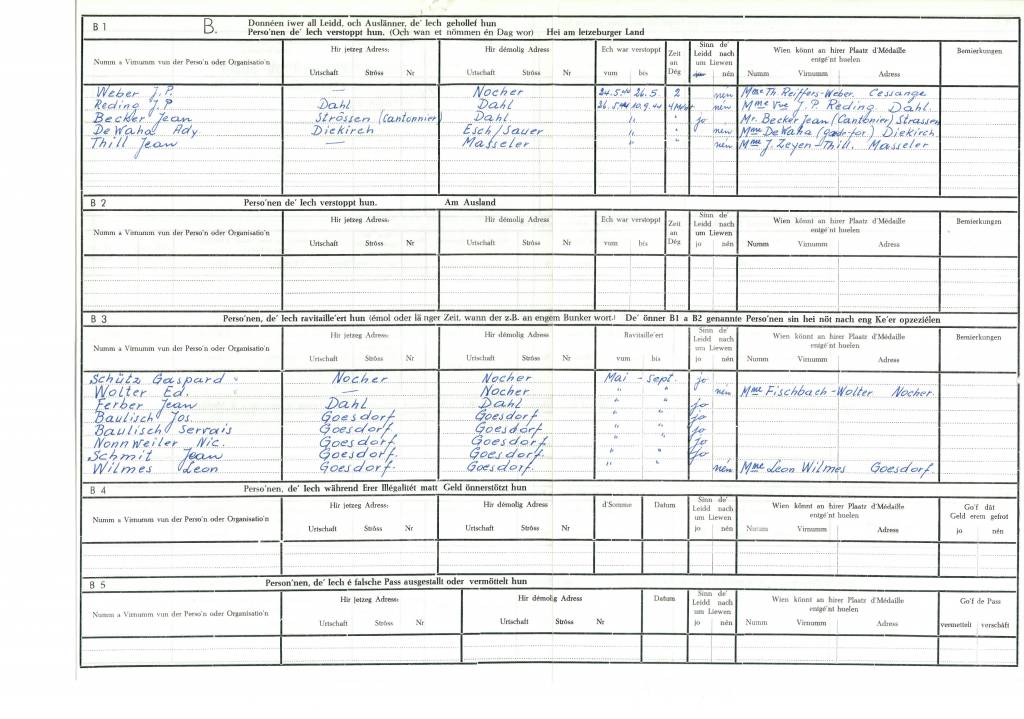 B 1 B. Donnéen iwer all Leidd, och Auslänner, de' Iech gehollef hun
Perso'nen de' Iech verstoppt hun. (Och wan et nömmen én Dag wor) Hei am letzeburger Land
Numm a Virnumm vun der Perso'n oder Organisatio'n Hir jetzeg Adress: Hir démolig Adress: Ech war verstoppt Zeit an Dég Sinn de' Leidd nach um Liewen Wien könnt an hirer Plaatz d'Médaille entgé'nt huelen Bemierkungen
Urtschaft Ströss Nr Urtschaft Ströss Nr vum bis jo nén Numm Virnumm Adress
Weber J.P. — Nocher 24.5.44 26.5 2 nén Mme Th. Reiffers-Weber. Cessange
Reding J.P Dahl Dahl 26.5.44 10.9.44 nén Mme Vve J.P. Reding. Dahl.
Becker Jean Strössen (Cantonnier) Dahl. " " jo Mr. Becker Jean (Cantonier) Strassen
De Waha Ady Diekirch Esch/Sauer " " nén Mme De Waha Diekirch
Thill Jean — Masseler " " nén Mme J. Zeyen-Thill. Masseler
B 2 Perso'nen de' Iech verstoppt hun. Am Ausland
Numm a Virnumm vun der Perso'n oder Organisatio'n Hir jetzeg Adress: Hir démolig Adress: Ech war verstoppt Zeit an Dég Sinn de' Leidd nach um Liewen Wien könnt an hirer Plaatz d'Médaille entgé'nt huelen Bemierkungen
Urtschaft Ströss Nr Urtschaft Ströss Nr vum bis jo nén Numm Virnumm Adress
B 3 Perso'nen, de' Iech ravitaille'ert hun (émol oder lä nger Zeit, wann der z.B. an engem Bunker wort.) De' önner B1 a B2 genannte Perso'nen sin hei nöt nach eng Ke'er opzeziélen
Numm a Virnumm vun der Perso'n oder Organisatio'n Hir jetzeg Adress: Hir démolig Adress: Ravitaille'ert Sinn de' Leidd nach um Liewen Wien könnt an hirer Plaatz d'Médaille entgé'nt huelen Bemierkungen
Urtschaft Ströss Nr Urtschaft Ströss Nr vum bis jo nén Numm Virnumm Adress
Schütz Gaspard Nocher Nocher Mai - Sept. jo
Wolter Ed. — Nocher " " nén Mme Fischbach-Wolter Nocher.
Ferber Jean Dahl Dahl " " jo
Baulisch Jos. Goesdorf Goesdorf. " " jo
Baulisch Servais Goesdorf. Goesdorf. " " jo
Nonnweiler Nic. Goesdorf. Goesdorf. " " jo
Schmit Jean Goesdorf. Goesdorf. " " jo
Wilmes Leon Goesdorf. Goesdorf. " " nén Mme Leon Wilmes Goesdorf.
B 4 Perso'nen, de' Iech während Erer Illégalitét matt Geld önnerstötzt hun
Numm a Virnumm vun der Perso'n oder Organisatio'n Hir jetzeg Adress: Hir démolig Adress: d'Somme Datum Sinn de' Leidd nach um Liewen Wien könnt an hirer Plaatz d'Médaille entgé'nt huelen Go'f dât Geld erem gefrot
Urtschaft Ströss Nr Urtschaft Ströss Nr jo nén Numm Virnumm Adress jo nén
B 5 Person'nen, de' Iech é falsche Pass ausgestallt oder vermöttelt hun
Numm a Virnumm vun der Perso'n oder Organisatio'n Hir jetzeg Adress: Hir démolig Adress: Datum Sinn de' Leidd nach um Liewen Wien könnt an hirer Plaatz d'Médaille entgé'nt huelen Go'f de Pass
Urtschaft Ströss Nr Urtschaft Ströss Nr jo nén Numm Virnumm Adress vermettelt verschäft